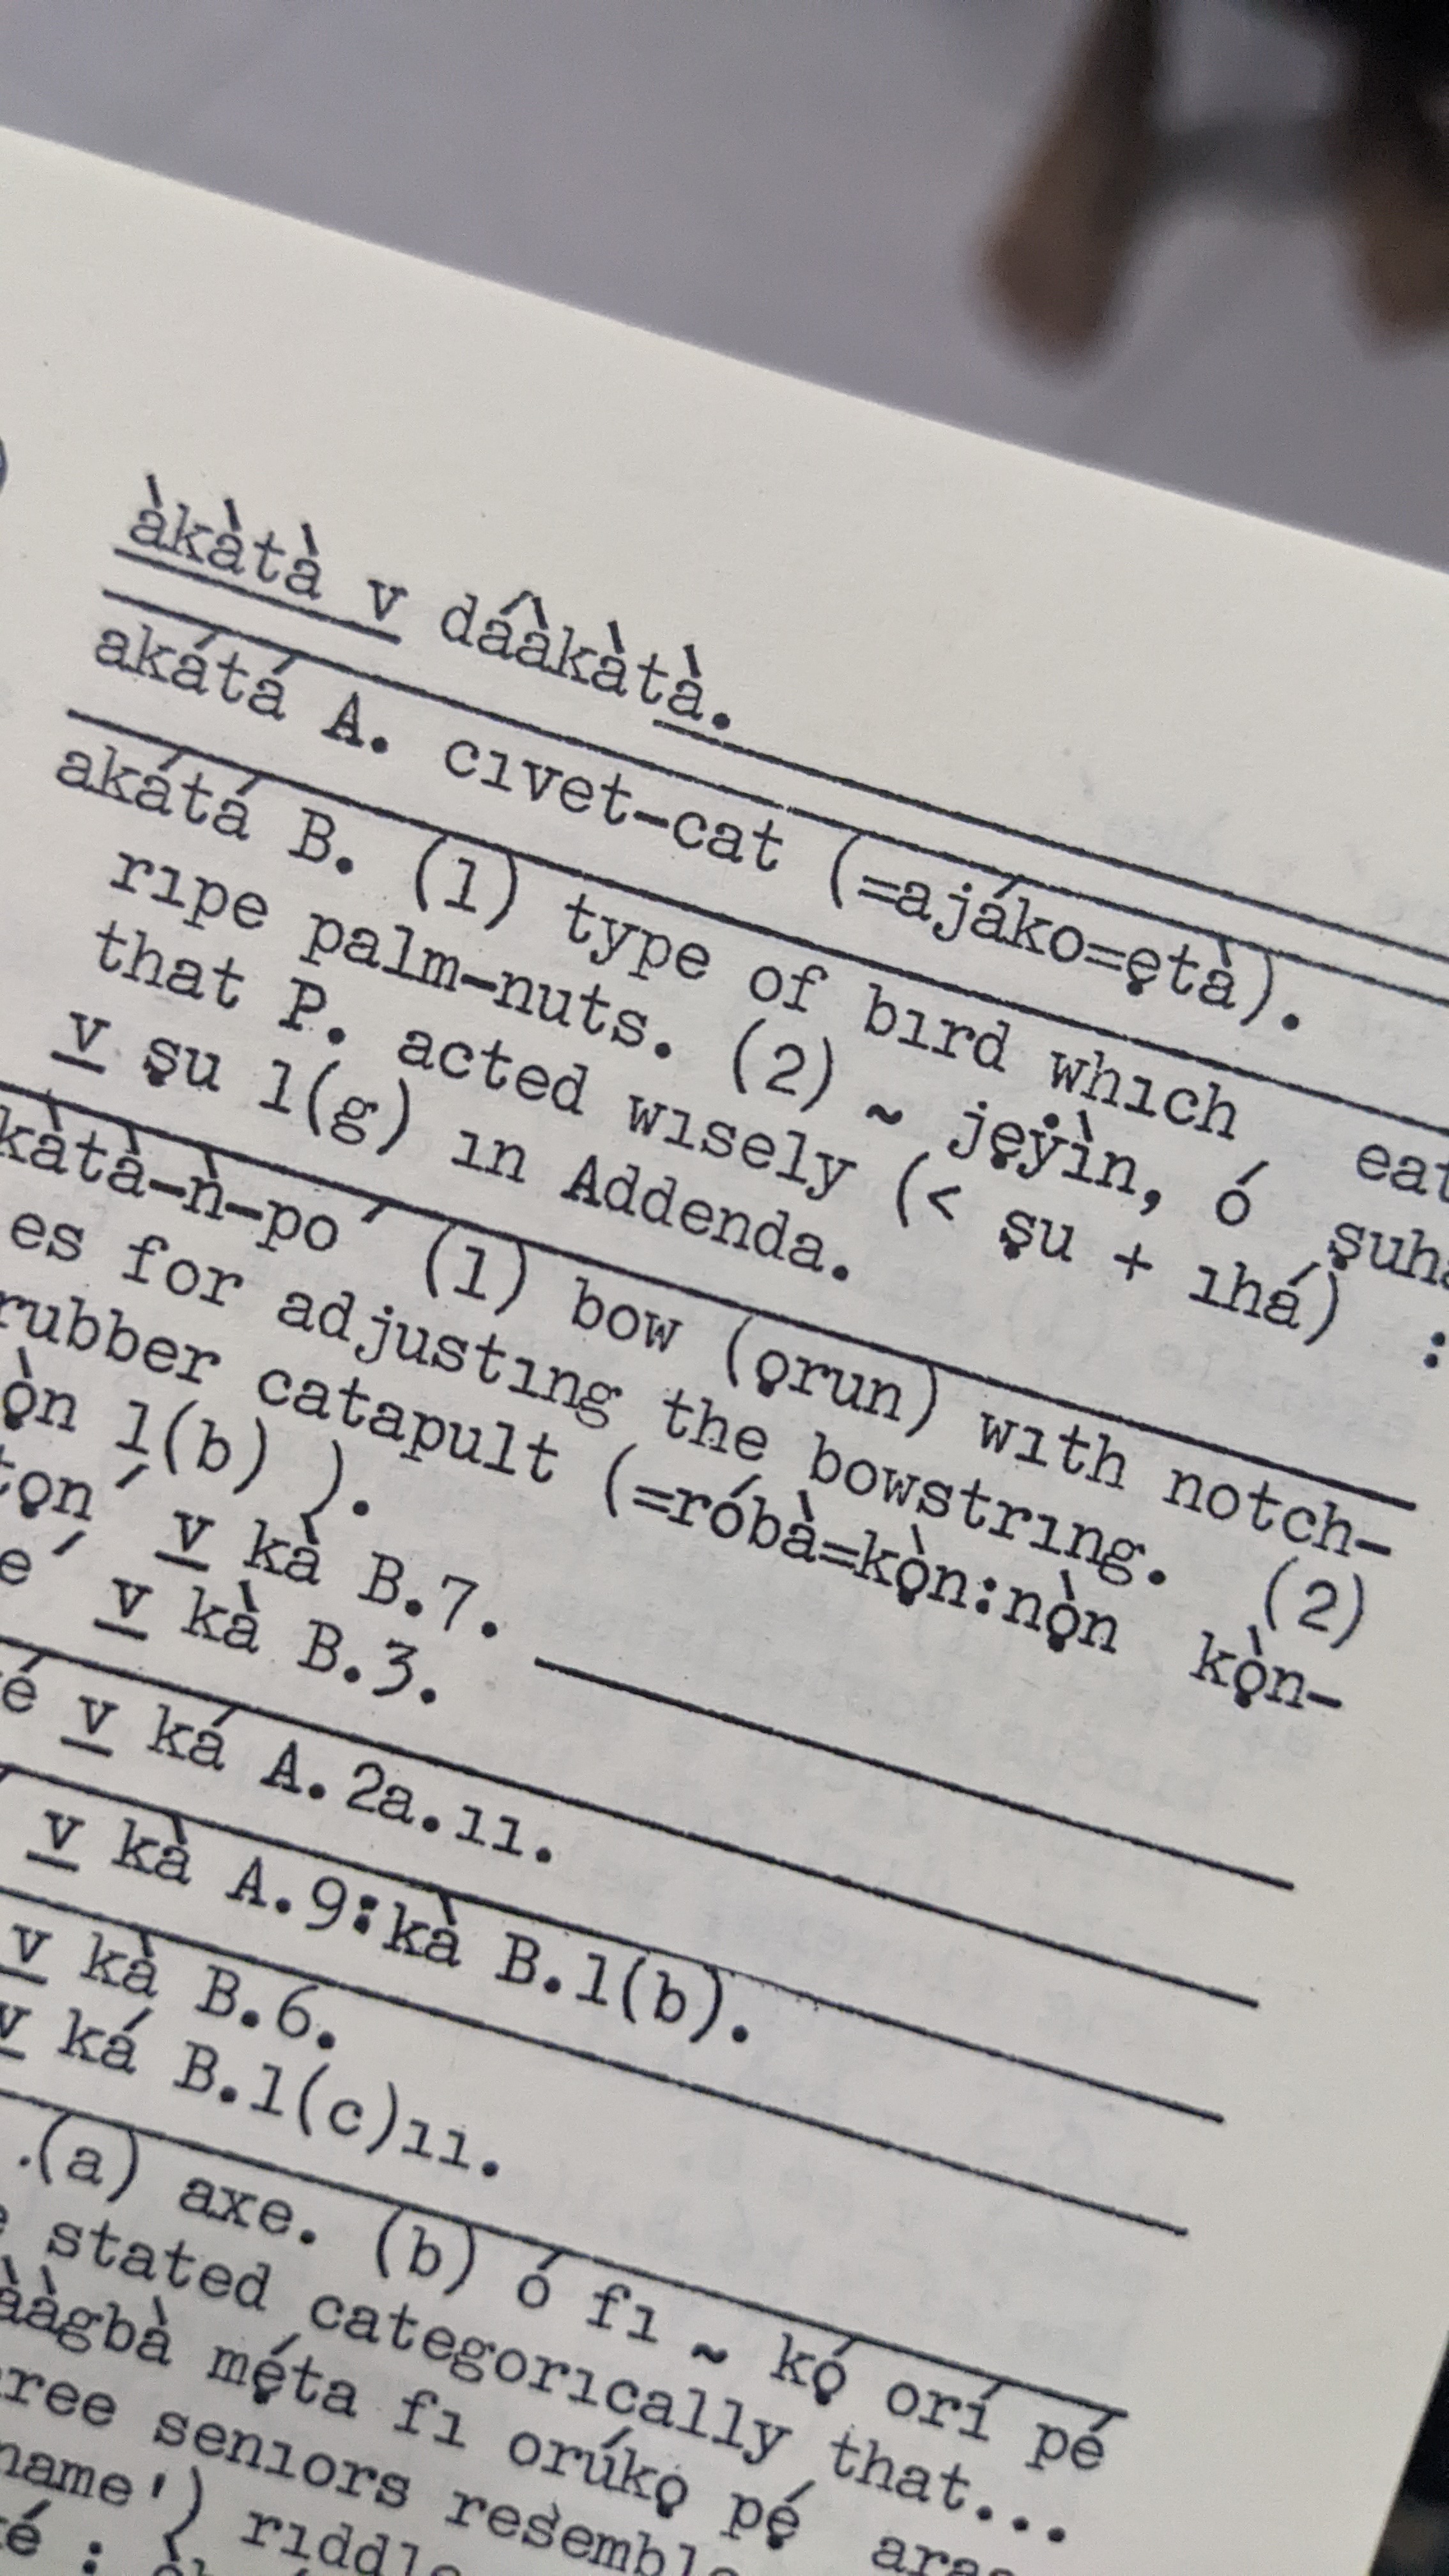 àkàtà v dáàkàtà.
akátá A. cıvet-cat (=ajáko=ẹtà).
akátá B. (1) type of bırd whıch eat
rıpe palm-nuts. (2) ~ jẹỳìn, ó ṣuh
that P. acted wısely (< ṣu + ıhá) :
v ṣu 1(g) ın Addenda.
kàtà-ǹ-po´ (1) bow (ọrun) wıth notch-
es for adjustıng the bowstrıng. (2)
rubber catapult (=róbà=kọ̀n:nọ̀n kọ̀n-
ọ̀n 1(b) ).
tọn´ v kà B.7.
e´ v kà B.3.
é v ká A.2a.ıı.
v kà A.9:kà B.1(b).
v kà B.6.
v ká B.1(c)ıı.
.(a) axe. (b) ó fı ~ kọ́ orí pé
stated categorıcally that...
ààgbà mẹ́ta fı orúkọ pẹ́ ara
ree senıors resembl
name') rıddl
é :